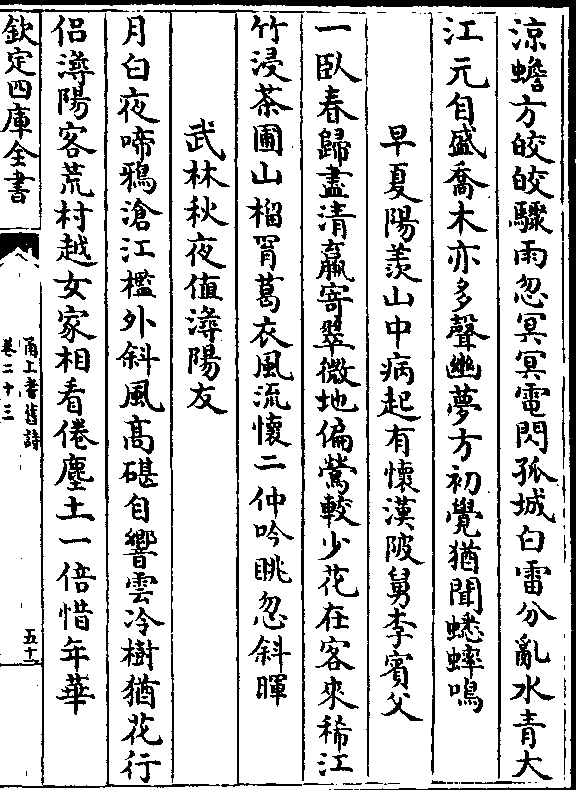 涼蟾方皎皎驟雨忽冥冥電閃孤城白雷分亂水青大
江元自盛喬木亦多聲幽夢方初覺猶聞蟋蟀鳴
早夏陽羨山中病起有懷漢陂舅李賓父
一臥春歸盡清羸寄翠微地偏鶯較少花在客來稀江
竹浸茶圃山榴罥葛衣風流懷二仲吟眺忽斜暉
武林秋夜值潯陽友
月白夜啼鴉滄江檻外斜風高碪自響雲冷樹猶花行
侶潯陽客荒村越女家相看倦塵土一倍惜年華
欽定四庫全書
甬上耆舊詩
卷二十三
五十